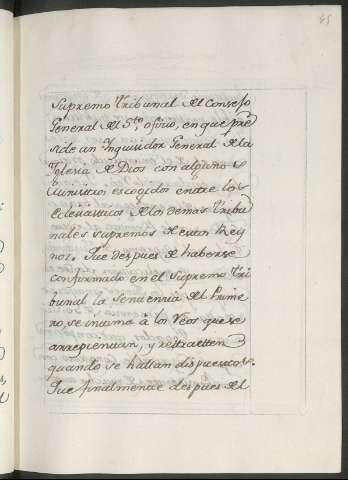 45
Supremo Tribunal del Consejo
General del S.to oficio, en que pre
side un Inquisidor General de la
Iglesia de Dios con algunos
Juristas escogidos entre los
Eclesiasticos de los demas Tribu
nales supremos de estos Rey
nos. Que despues de haberse
conformado en el Supremo Tri
bunal la Sentencia del Prime
ro, se intima à los Reos que se
arrepientan, y retracten
quando se hallan dispuestos.
Que finalmente despues del